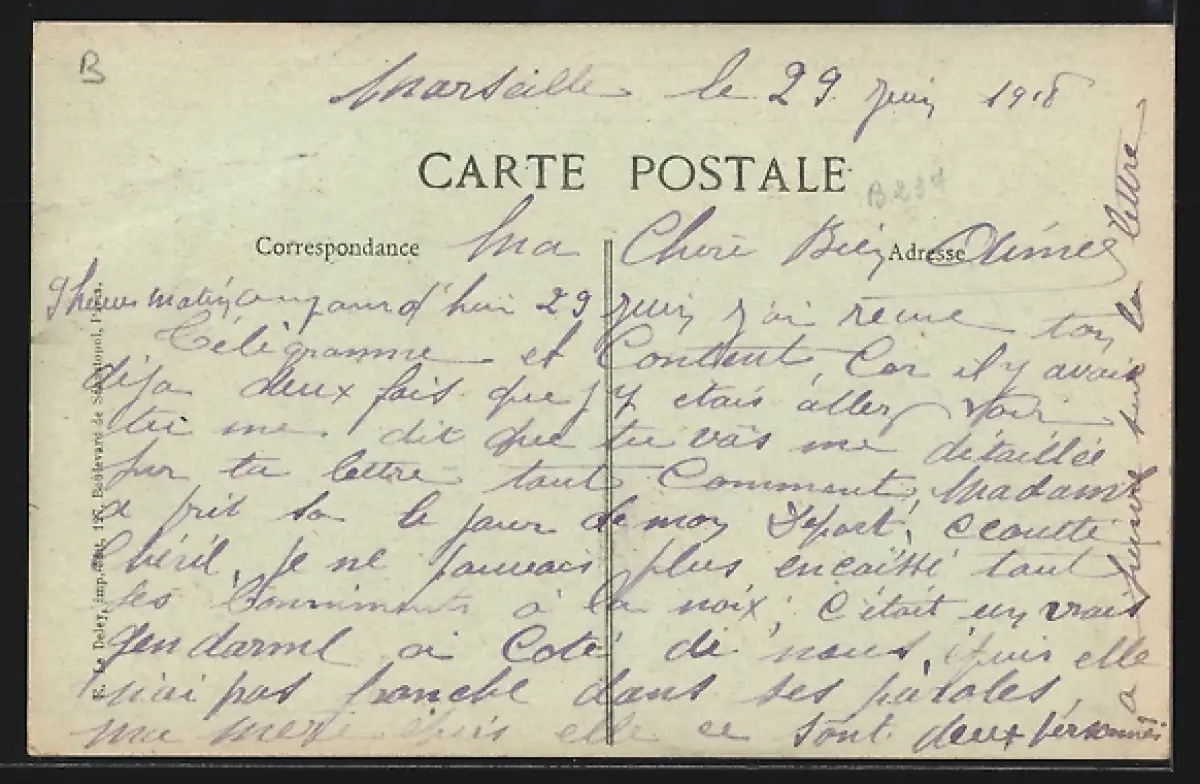 B
Marseille le 29 juin 1918
CARTE POSTALE
B234
Correspondance
Adresse
Ma Chere Bien Aimée
9 heures matin aujourd'hui 29 juin j'ai reçue ton
Téligramme et Content, Car il y avais
dèja deux fois que j'y étais aller voir
tu me dit que tu vas me détaillée
sur ta lettre tout Comment, Madame
a prit sa le jour de mon Départ, écoutte
Chéril, je ne pouvais plus encaissé tout
ses Bonniments à la noix, C'était un vrais
gendarmel a Coté de nous, épuis elle
n'ai pas franche dans ses paroles,
ma mere épuis elle ce sont deux personnes
a suivre sur la lettre
E. Le Deley, imp.-édit., 127, Boulevard de Sébastopol, Paris.